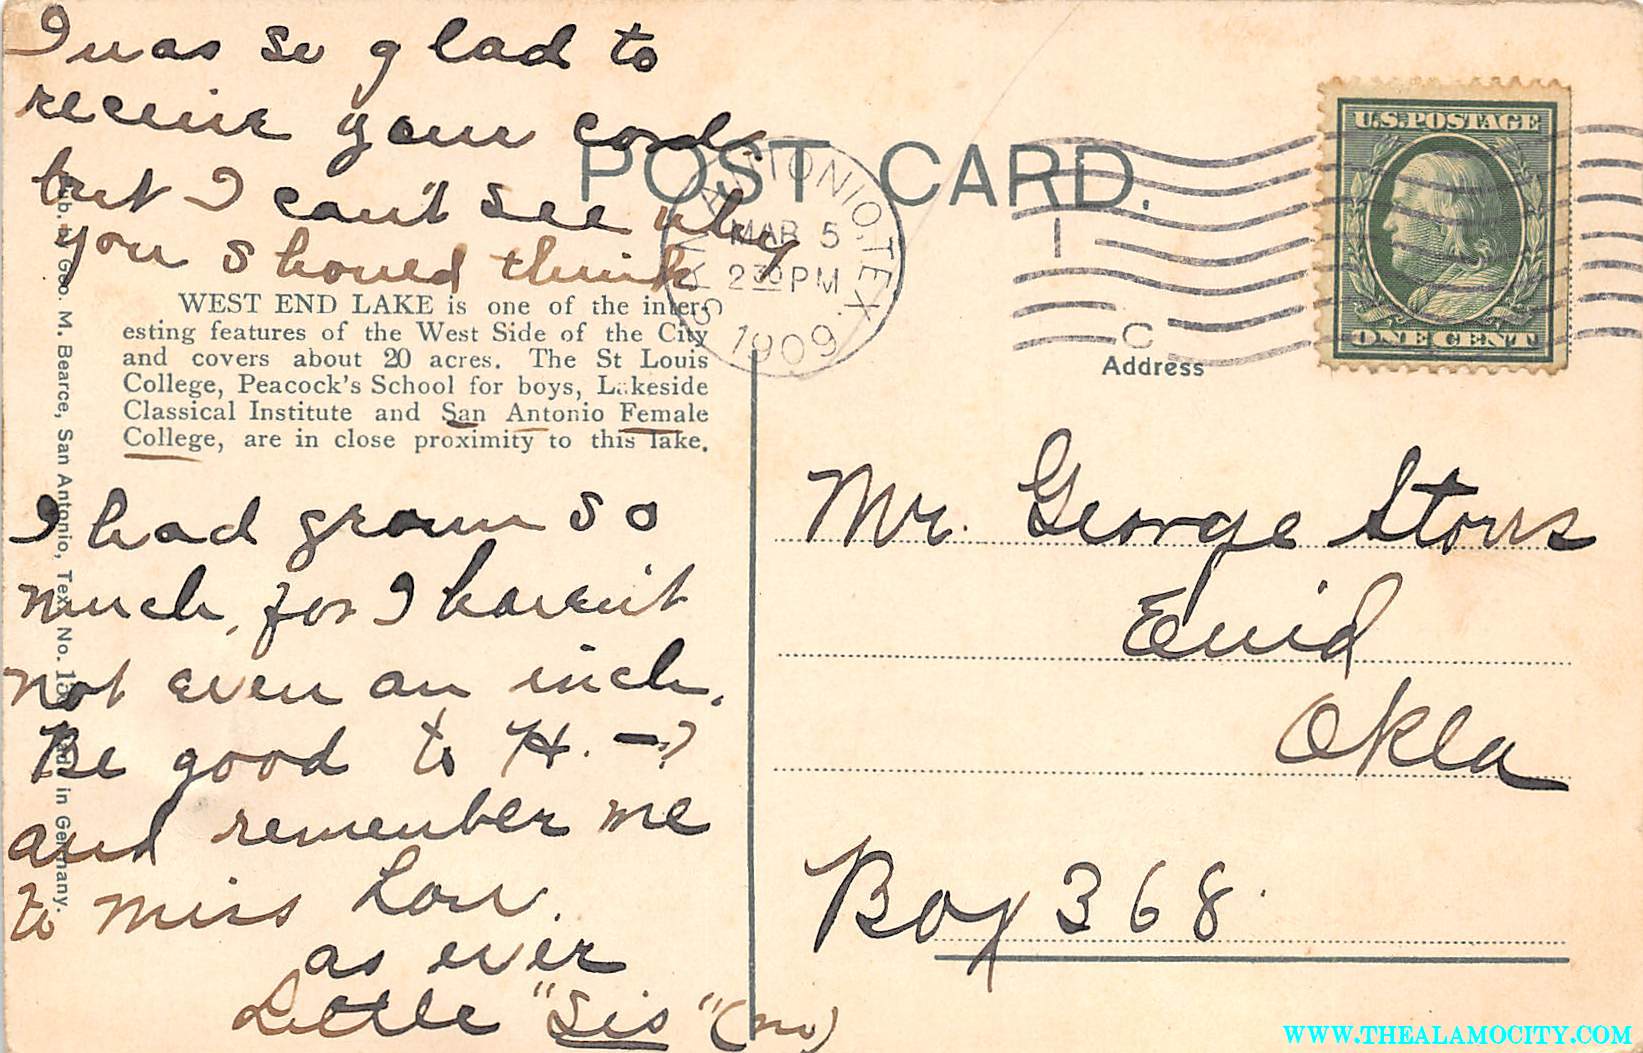 I was so glad to
receive your card
but I can't see why
you should think
WEST END LAKE is one of the inter-
esting features of the West Side of the City
and covers about 20 acres. The St Louis
College, Peacock's School for boys, Lakeside
Classical Institute and San Antonio Female
College, are in close proximity to this lake.
I had grown so
much, for I haven't
not even an inch.
Be good to H. —?
and remember me
to Miss Lou.
as ever
Little "Sis" (no)
Pub. by Geo. M. Bearce, San Antonio, Tex. No. in Germany.
POST CARD.
SAN ANTONIO, TEX.
MAR 5
2 30 PM
1909
1
C
U.S. POSTAGE
ONE CENT
Address
Mr. George Storrs
Enid
Okla
Box 368.
WWW.THEALAMOCITY.COM